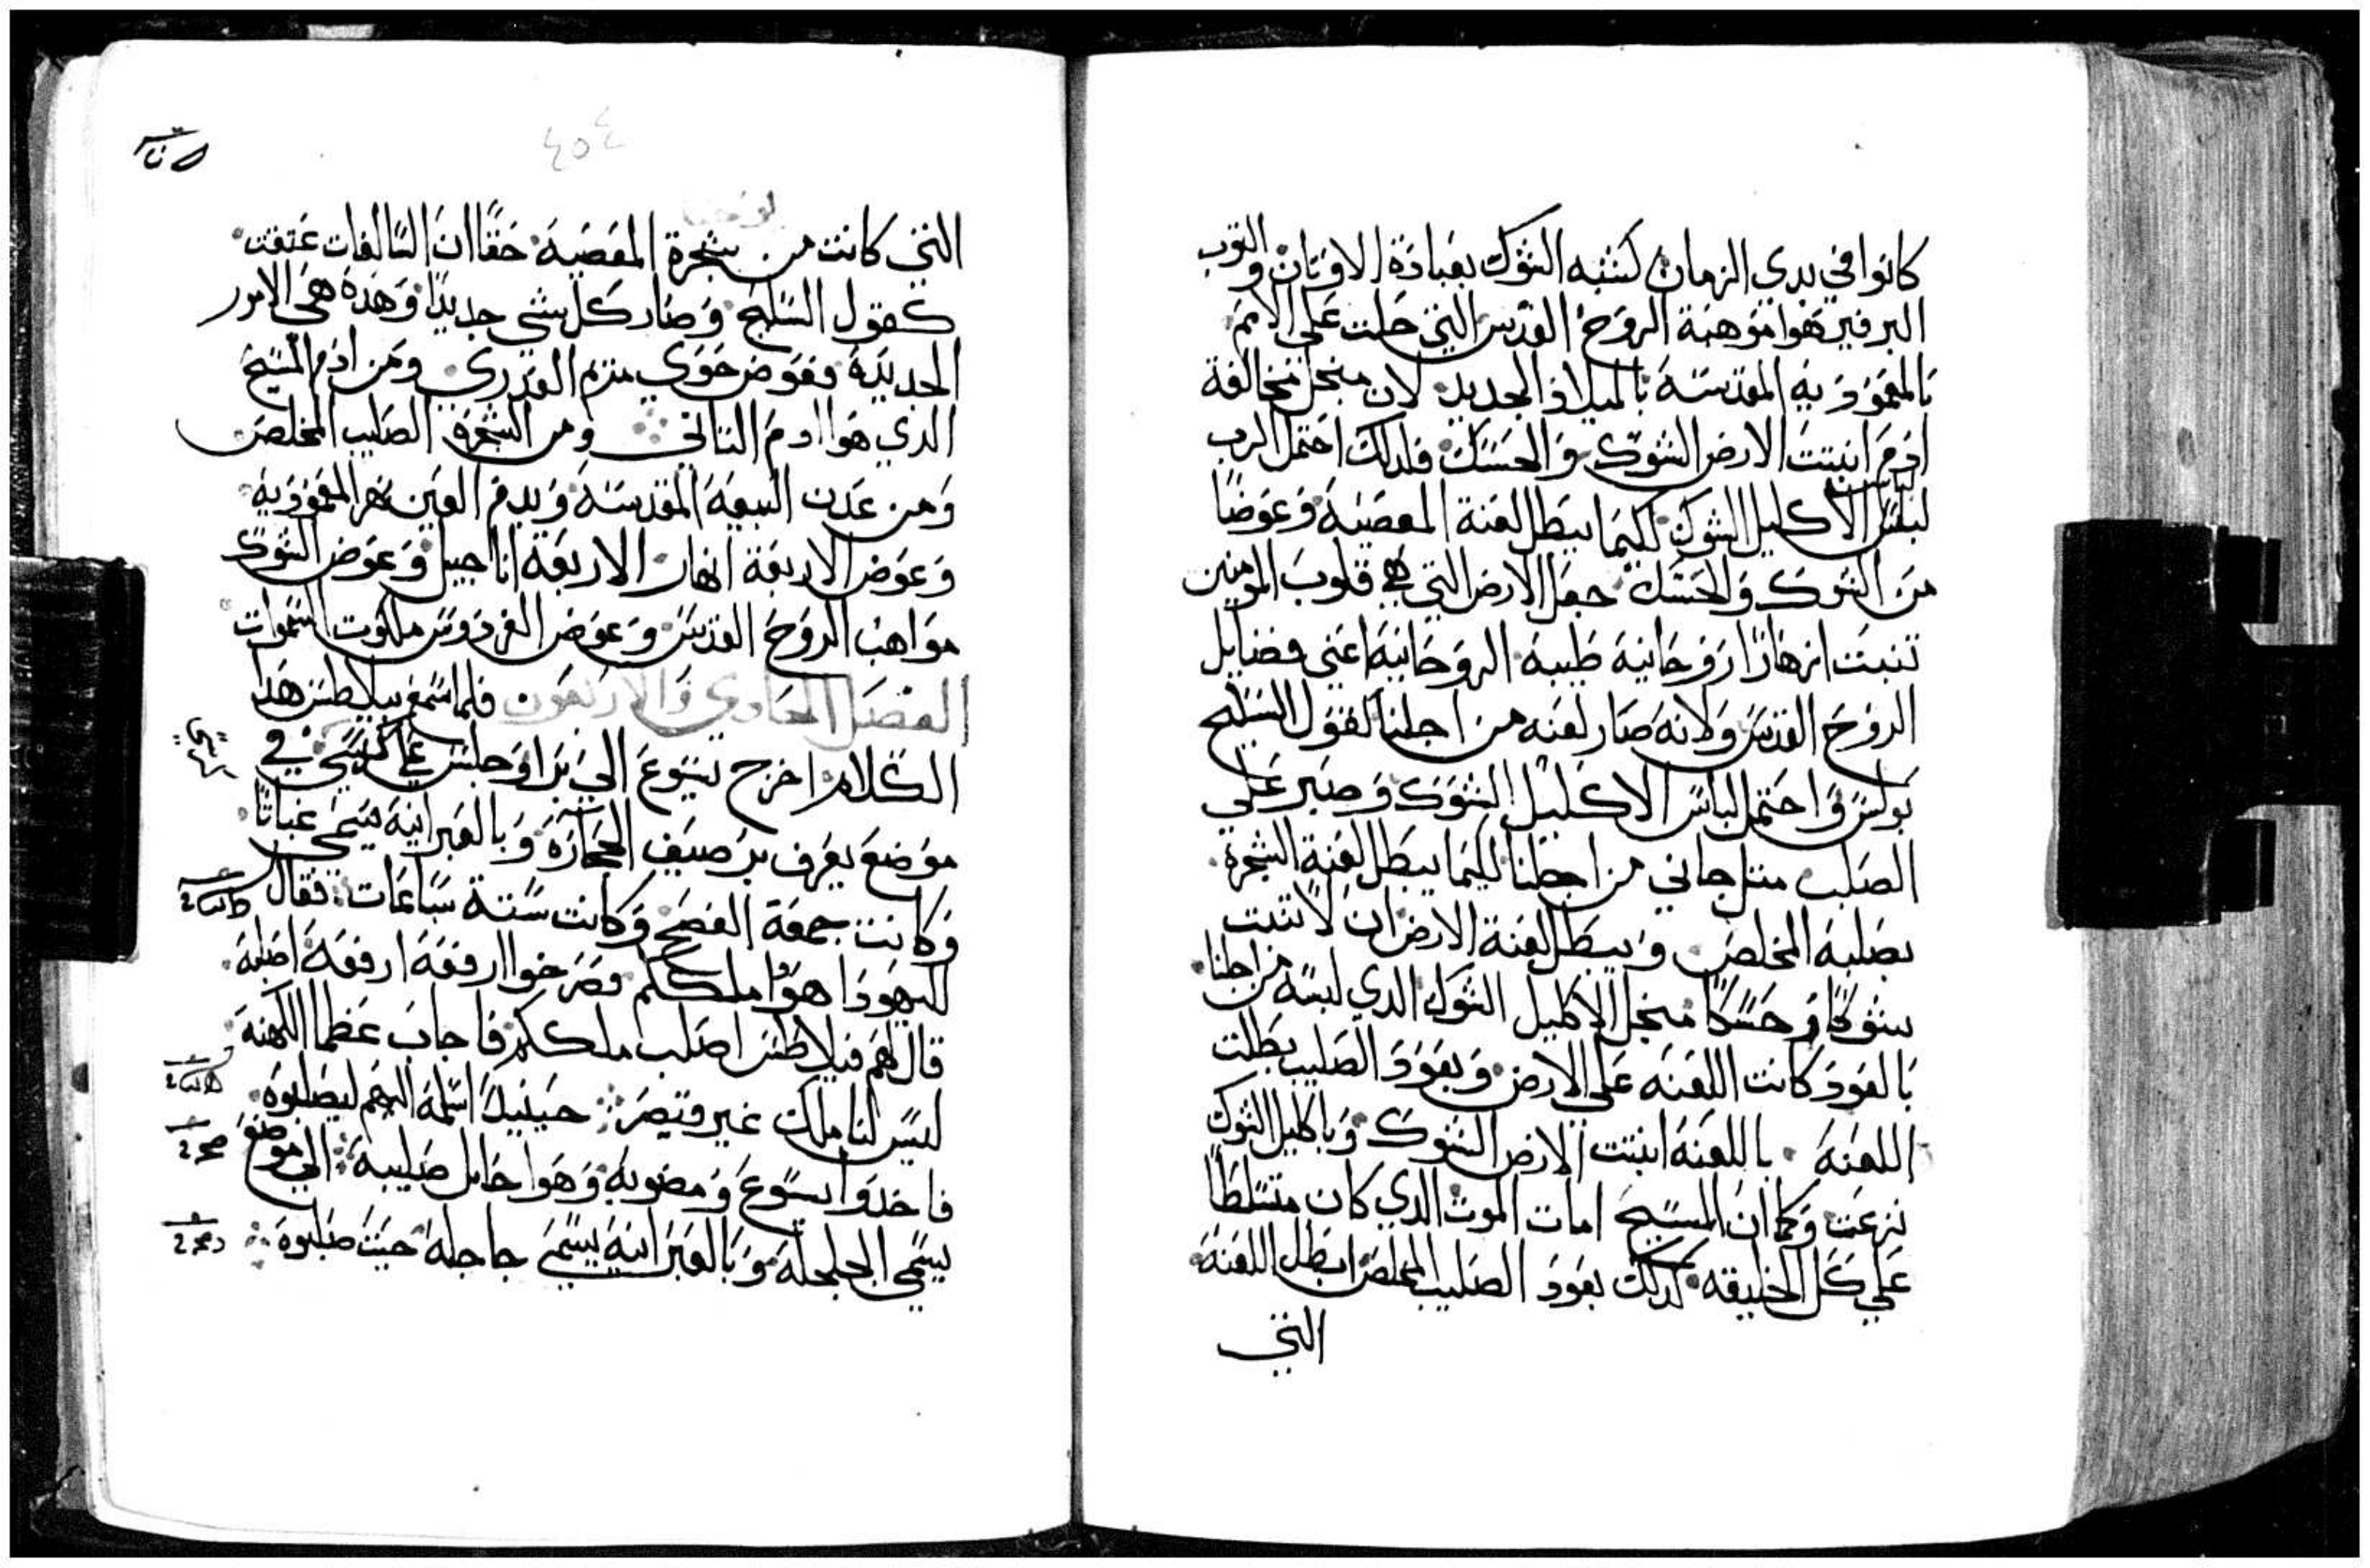 كانوا في بدي الزمان كشبه الشوك بعبادة الاوتان والتوب
البرفير هوا موهبة الروح القدس التي حلت على الامم
بالمعمودية المقدسة بالميلاد الجديد لان منجل مخالفة
ادم انبتت الارض الشوك والحسك فلدلك احتمل الرب
لباس الاكليل الشوك لكيما يبطل لعنة المعصية وعوضا
من الشوك والحسك جعل الارض التي هي قلوب المومنين
تنبت ازهارا روحانية طيبة الروحانية اعني فضايل
الروح القدس ولانه صار لعنه من اجلنا كقول السليح
بولس واحتمل لباس الاكليل الشوك وصبر علي
الصلب متل جاني من اجلنا لكيما يبطل لعنة الشجرة
بصلبة المخلص ويبطل لعنة الارض ان لا تنبت
شوكا وحسكا منجل الاكليل الشوك الدي لبسه من اجلنا
بالعود كانت اللعنه على الارض وبعود الصليب بطلت
اللعنة باللعنة انبتت الارض الشوك وباكليل الشوك
نزعت وكما ان المسيح امات الموت الدي كان متسلطا
علي كل الخليقه كدلك بعود الصليب المخلص ابطل اللعنة
التي
٤٥٤
التي كانت من شجرة المعصية حقا ان السالفات عتقت
كقول السليح وصار كل شي جديدا وهده هي الامور
الجديدة فعوض حوي مريم العدري ومن ادم المسيح
الدي هوا ادم التاني ومن الشجرة الصليب المخلص
ومن عدن البيعة المقدسة وبدم العين نهر المعمودية
وعوض الاربعة انهار الاربعة اناجيل وعوض الشوك
مواهب الروح القدس وعوض الفردوس ملكوت السموات
الفصل الحادي والاربعون فلما سمع بيلاطس هدا
الكلام اخرج يسوع الي برا وجلس علي كرسي في
موضع يعرف برصيف الحجارة وبالعبرانية يسمى غباتا
وكانت جمعة الفصح وكانت ستة ساعات فقال
لليهود ا هوا ملككم فصرخوا ارفعه ارفعه اصلبه
قال لهم فيلاطس اصلب ملككم فاجاب عظما الكهنة
ليس لنا ملك غير قيصر حينيد اسلمه اليهم ليصلبوه
فاخدوا يسوع ومضوبه وهوا حامل صليبة الي موضع
يسمي الجلجلة وبالعبرانية يسمى جاجله حيت صلبوه